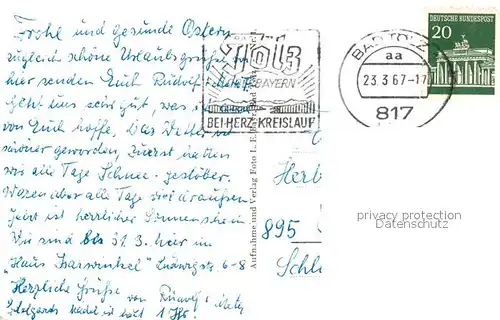 Frohe und gesunde Ostern
zugleich schöne Urlaubsgrüße von
hier senden Euch Rudolf
Geht uns sehr gut, was
von Euch hoffe. Das Wetter ist
schöner geworden, zuerst hatten
wir alle Tage Schnee-gestöber.
Waren aber alle Tage viel draußen
Jetzt ist herrlicher Sonnenschein
Wir sind bis 31.3. hier im
"Haus Isarwinkel" Ludwigstr. 6-8
Herzliche Grüße von Rudolf
ist 1 Jhr!
Aufnahme und Verlag Foto L.
BAD
Tölz
BAYERN
BEI HERZ-KREISLAUF
BAD TÖLZ
aa
23.3.67-17
817
DEUTSCHE BUNDESPOST
20
Herb
895
Schl
privacy protection
Datenschutz